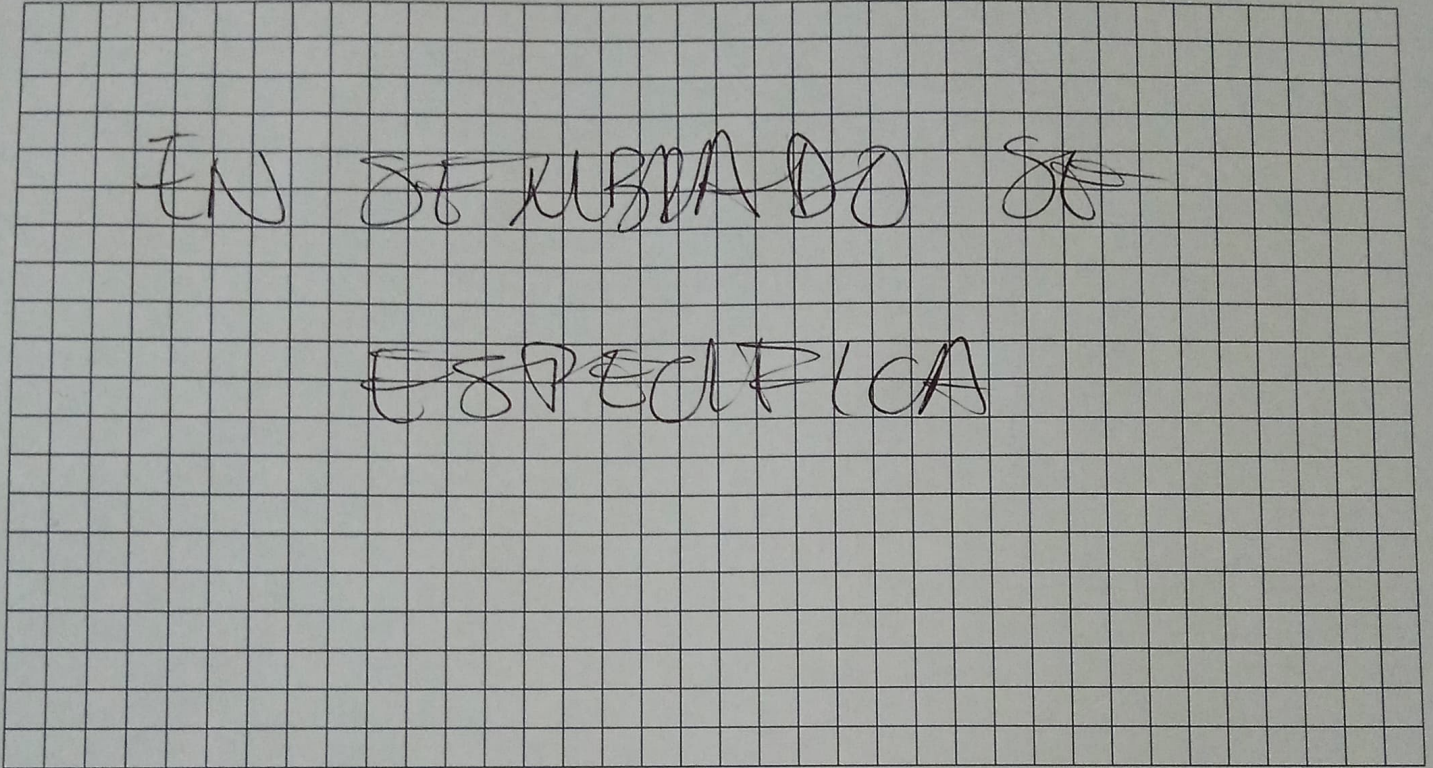 EN SEMBRADO SE
ESPECIFICA